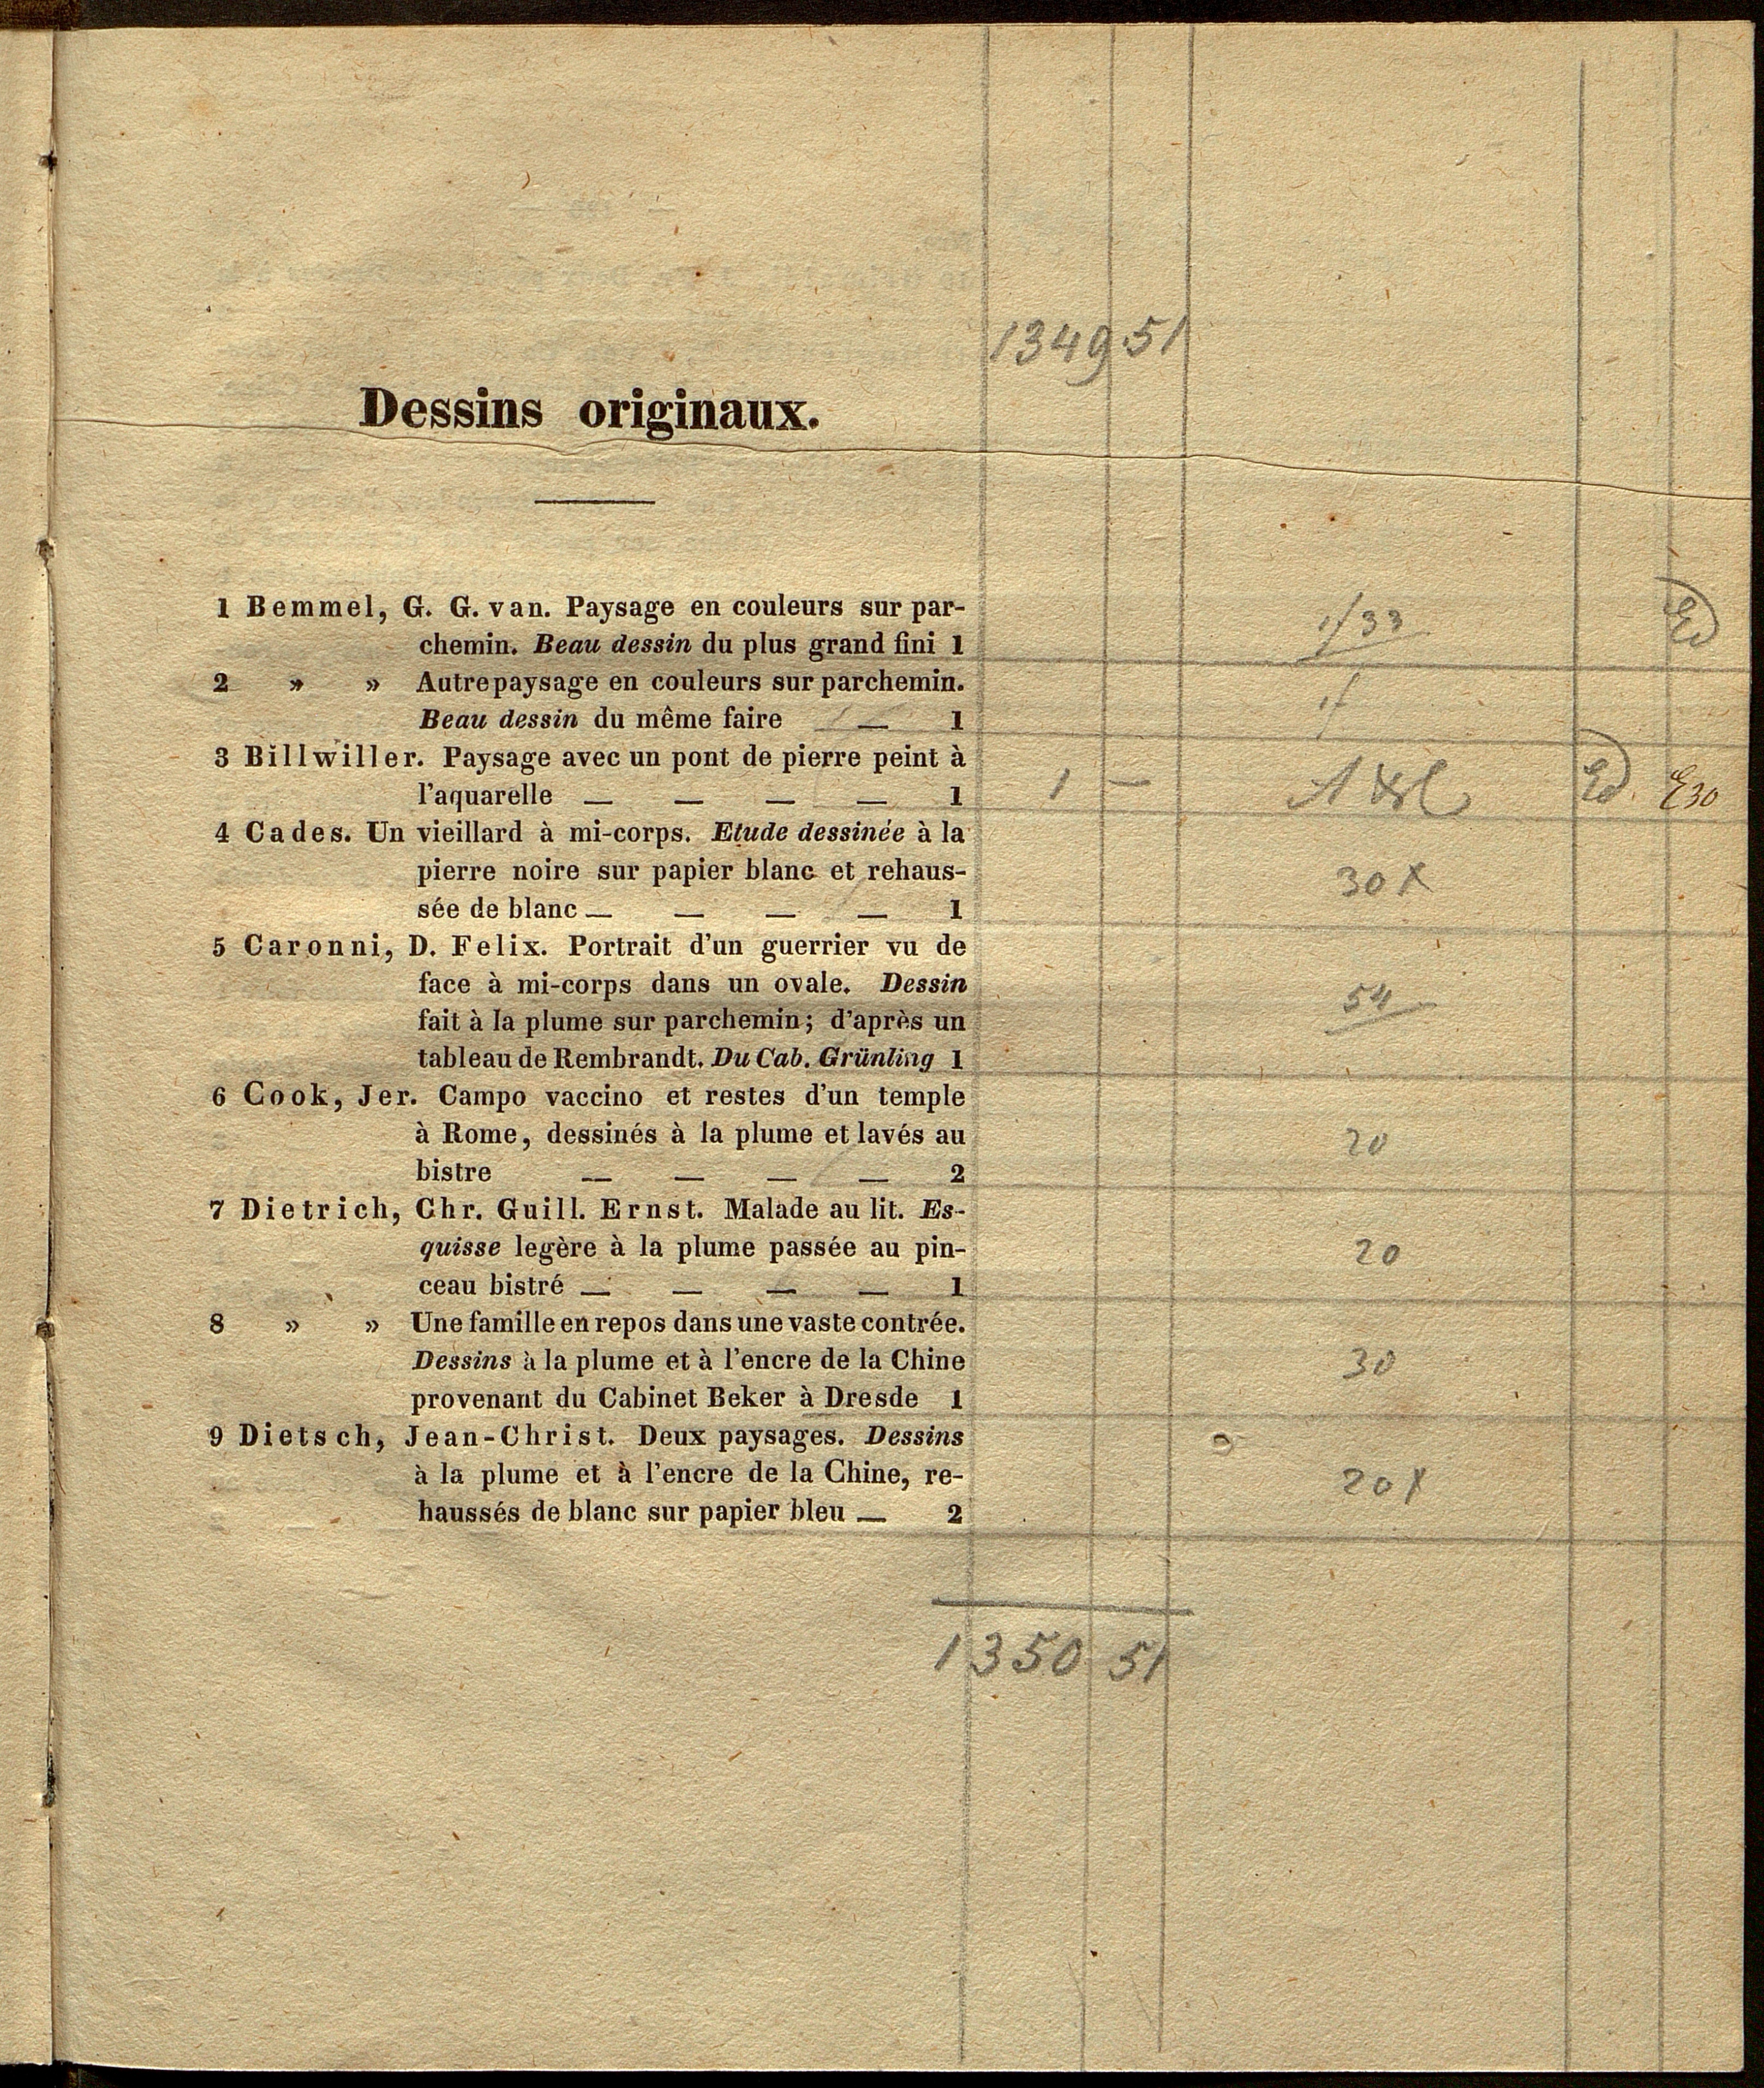 1349 51
Dessins originaux.
1 Bemmel, G. G. van. Paysage en couleurs sur par-
chemin. Beau dessin du plus grand fini 1
1f33
Ed
2 » » Autre paysage en couleurs sur parchemin.
Beau dessin du même faire — 1
1f
3 Billwiller. Paysage avec un pont de pierre peint à
l'aquarelle — — — — 1
1 — Ed E30
4 Cades. Un vieillard à mi-corps. Etude dessinée à la
pierre noire sur papier blanc et rehaus-
sée de blanc — — — — 1
30 x
5 Caronni, D. Felix. Portrait d'un guerrier vu de
face à mi-corps dans un ovale. Dessin
fait à la plume sur parchemin; d'après un
tableau de Rembrandt. Du Cab. Grünling 1
54
6 Cook, Jer. Campo vaccino et restes d'un temple
à Rome, dessinés à la plume et lavés au
bistre — — — — 2
20
7 Dietrich, Chr. Guill. Ernst. Malade au lit. Es-
quisse legère à la plume passée au pin-
ceau bistré — — — — 1
20
8 » » Une famille en repos dans une vaste contrée.
Dessins à la plume et à l'encre de la Chine
provenant du Cabinet Beker à Dresde 1
30
9 Dietsch, Jean-Christ. Deux paysages. Dessins
à la plume et à l'encre de la Chine, re-
haussés de blanc sur papier bleu — 2
20 x
1350 51